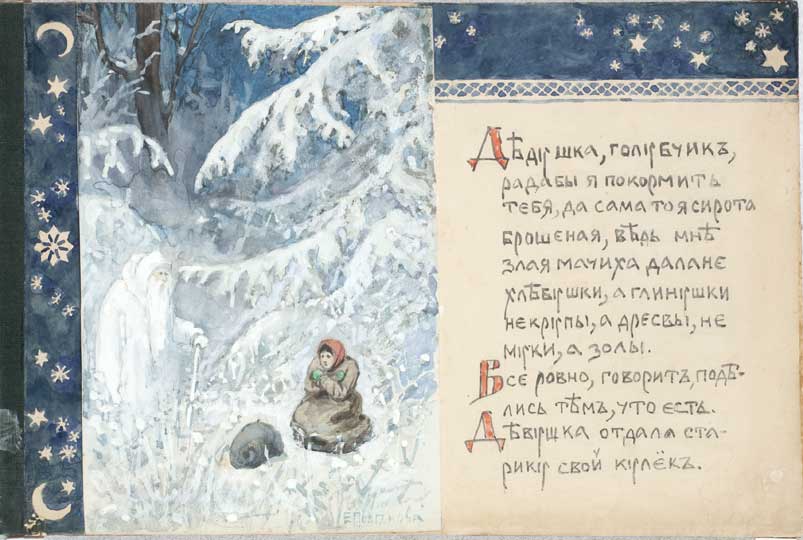 Е Поленова
Дѣдушка, голубчикъ,
рада бы я покормить
тебя, да сама то я сирота
брошеная, вѣдь мнѣ
злая мачиха дала не
хлѣбушки, а глинушки
не крупы, а дресвы, не
муки, а золы.
Все ровно, говоритъ, подѣ-
лись тѣмъ, что есть.
Дѣвушка отдала ста-
рику свой кулёкъ.